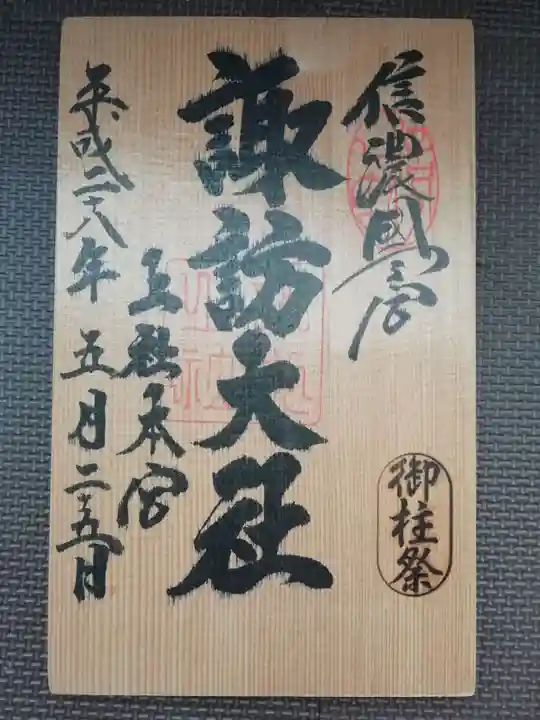 信濃國一宮
御柱祭
諏訪大社
上社本宮
平成二十八年五月二十五日